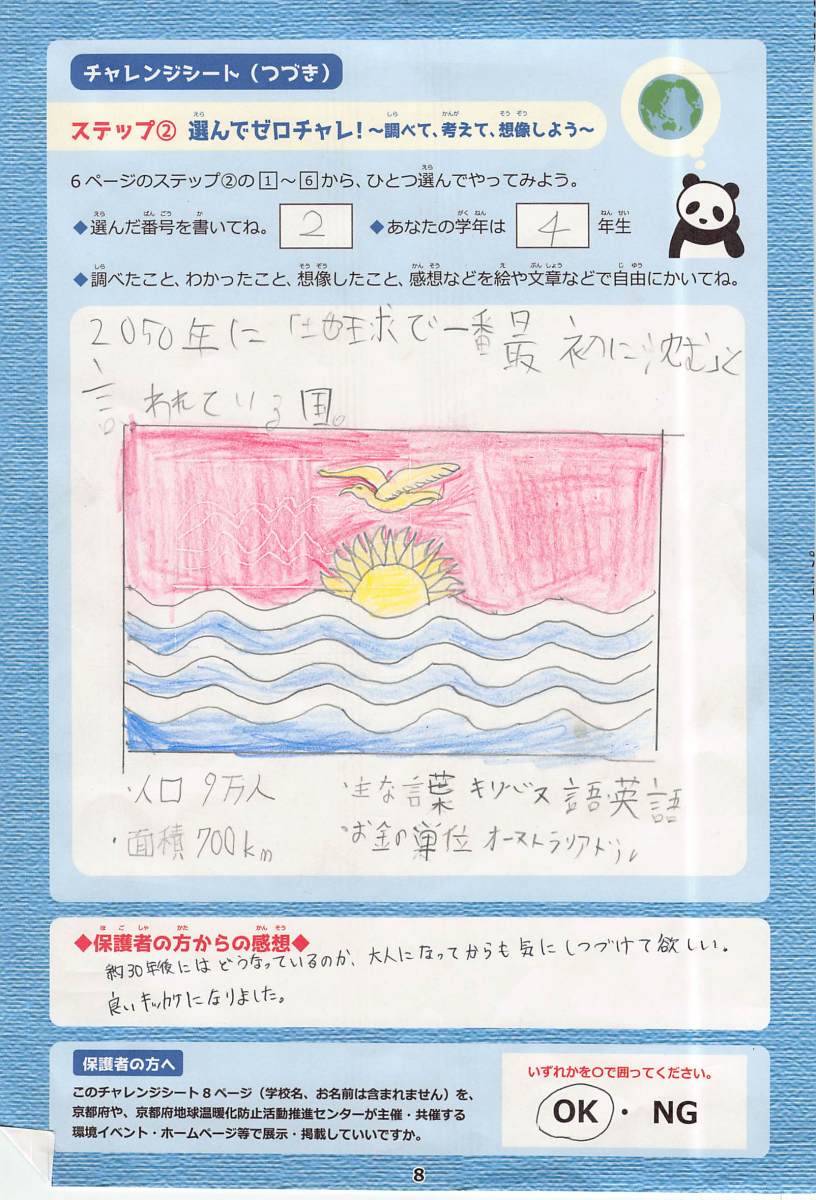 チャレンジシート（つづき）
ステップ② 選んでゼロチャレ！～調べて、考えて、想像しよう～
6ページのステップ②の1～6から、ひとつ選んでやってみよう。
◆選んだ番号を書いてね。 2 ◆あなたの学年は 4 年生
◆調べたこと、わかったこと、想像したこと、感想などを絵や文章などで自由にかいてね。
2050年に「地球で一番最初に沈む」と
言われている国。
・人口 9万人 ・主な言葉 キリバス語・英語
・面積 700km ・お金の単位 オーストラリアドル
◆保護者の方からの感想◆
約30年後にはどうなっているのか、大人になってからも気にしつづけて欲しい。
良いキッカケになりました。
保護者の方へ
このチャレンジシート8ページ（学校名、お名前は含まれません）を、
京都府や、京都府地球温暖化防止活動推進センターが主催・共催する
環境イベント・ホームページ等で展示・掲載していいですか。
いずれかを○で囲ってください。
OK ・ NG
8